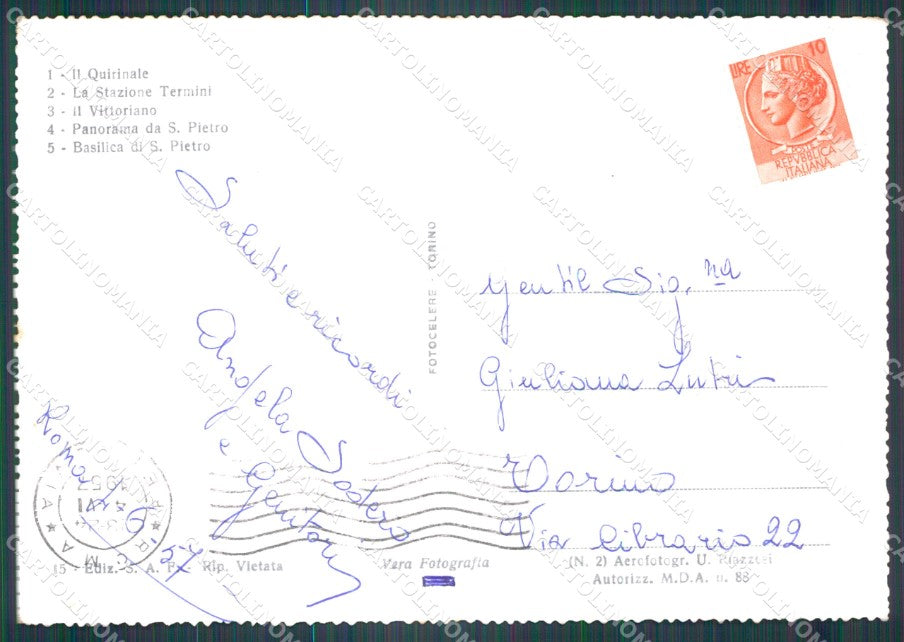 1 - Il Quirinale
2 - La Stazione Termini
3 - Il Vittoriano
4 - Panorama da S. Pietro
5 - Basilica di S. Pietro
LIRE 10
POSTE
REPVBBLICA
ITALIANA
Saluti e ricordi
Angela Sodero
e Genitori
Roma
57
ROMA
FOTOCELERE - TORINO
Gentil Sig.na
Giuliana
Torino
Via Librario 22
15 - Ediz. S. A. F. Rip. Vietata
Vera Fotografia
(N. 2) Aerofotogr. U.
Autorizz. M.D.A. n. 88
CARTOLINOMANIA